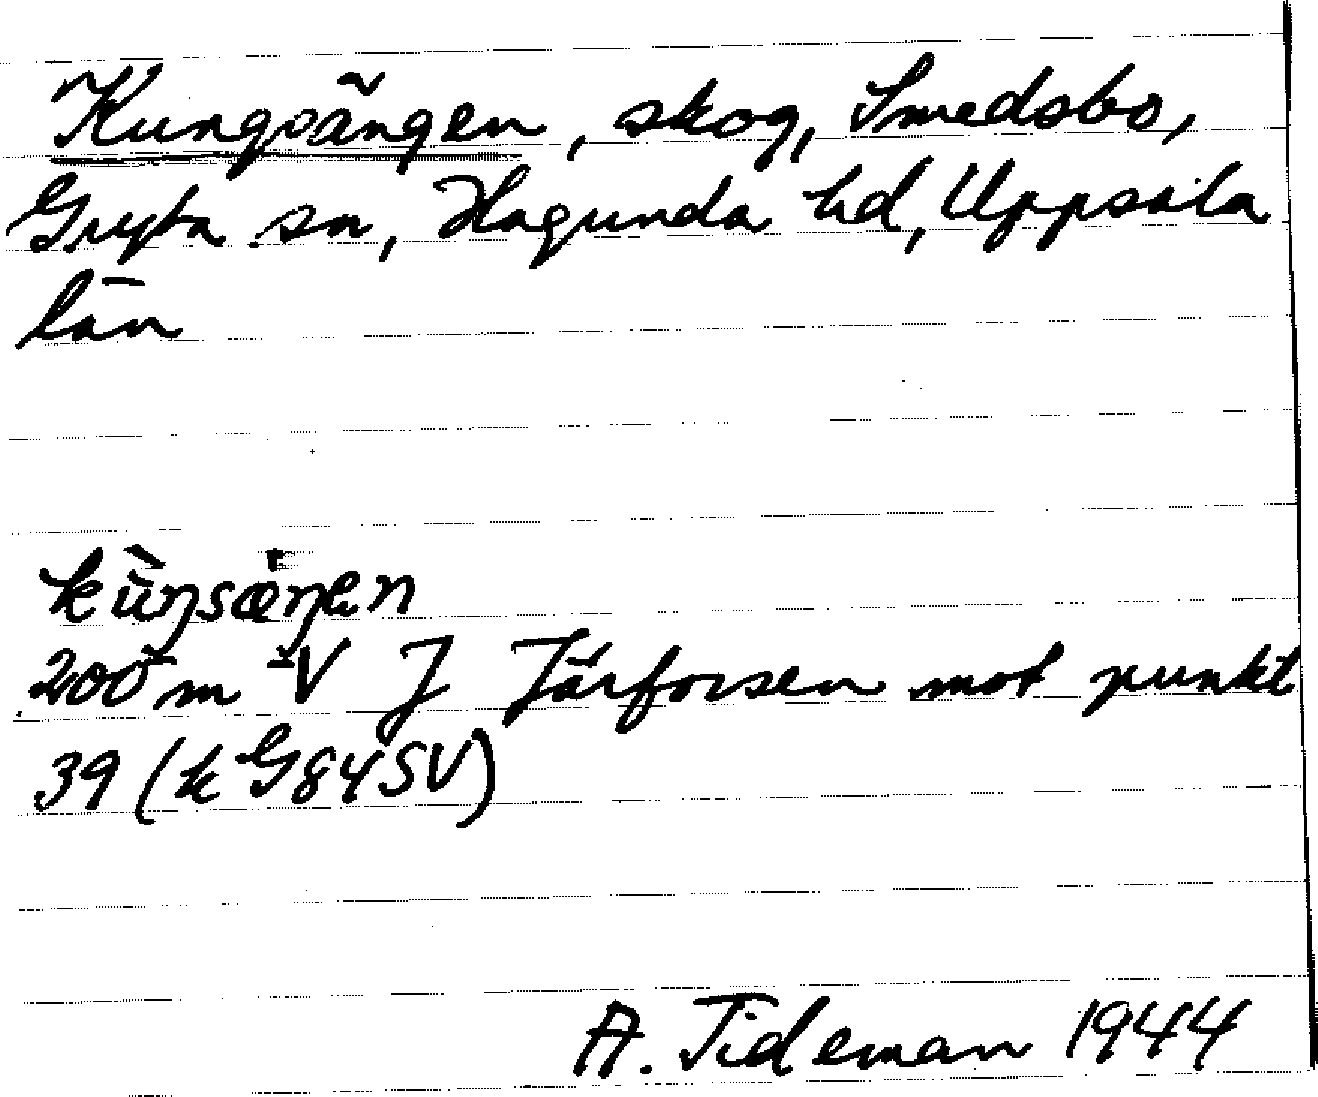 Kungsängen, skog, Smedsbo,
Gryta sn, Hagunda hd, Uppsala
län
kùŋsæŋen
200 m V J Järforsen mot punkt
39 (k G84SV)
A. Tideman 1944